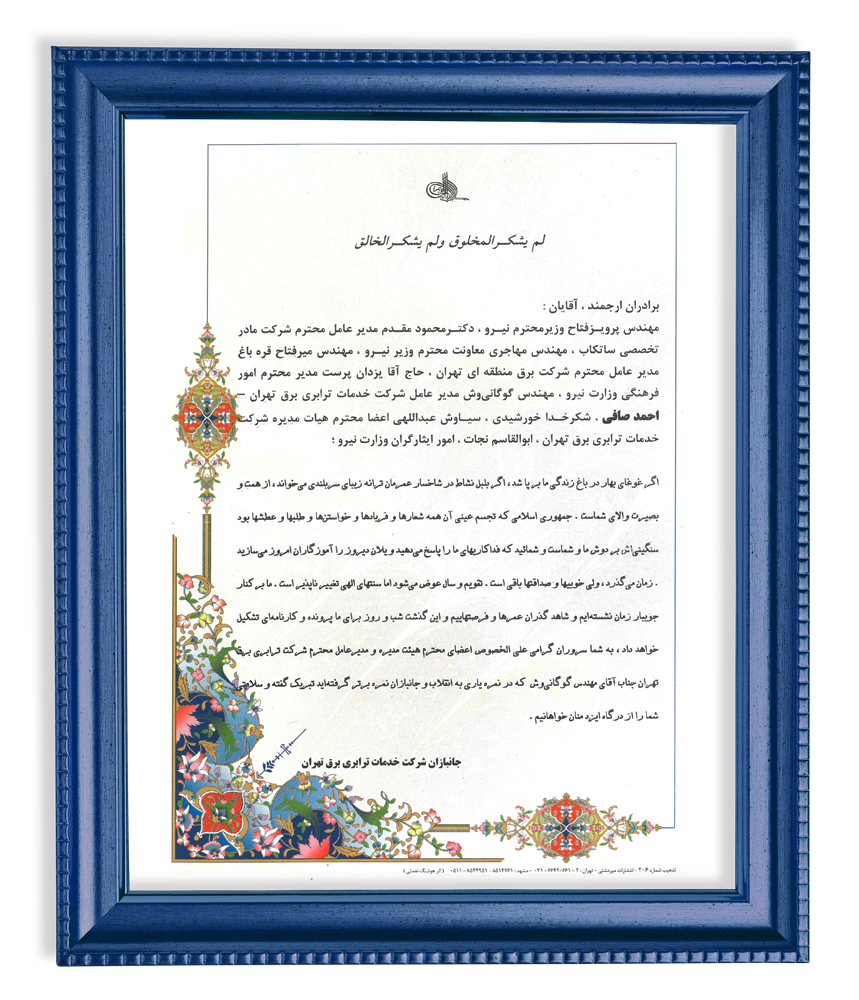 لم یشکـرالمخلوق ولم یشکـرالخالق
برادران ارجمند ، آقایان :
مهندس پرویـزفتاح وزیرمحترم نیـرو ، دکتـرمحمود مقـدم مدیر عامل محترم شرکت مادر
تخصصی ساتکاب ، مهندس مهاجری معاونت محترم وزیر نیـرو ، مهندس میرفتاح قره باغ
مدیر عامل محترم شرکت برق منطقه ای تهران ، حاج آقا یزدان پرست مدیر محترم امور
فرهنگی وزارت نیرو ، مهندس گوگانی‌وش مدیر عامل شرکت خدمات ترابری برق تهران –
احمد صافی ، شکرخـدا خورشیدی ، سیـاوش عبداللهی اعضا محترم هیات مدیره شرکت
خدمات ترابری برق تهران ، ابوالقاسم نجات ، امور ایثارگران وزارت نیرو ؛
اگر غوغای بهار در باغ زندگی ما بر پا شد ، اگر بلبل نشاط در شاخسار عمرمان ترانه زیبای سربلندی می‌خواند ، از همت و
بصیرت والای شماست . جمهوری اسلامی که تجسم عینی آن همه شعارها و فریادها و خواستن‌ها و طلبها و عطشها بود
سنگینی‌اش بر دوش ما و شماست و شمائید که فداکاریهای ما را پاسخ می‌دهید و یلان دیروز را آموزگاران امروز می‌سازید
. زمان می‌گذرد ، ولی خوبیها و صداقتها باقی است . تقویم و سال عوض می‌شود اما سنتهای الهی تغییر ناپذیر است . ما بر کنار
جویبار زمان نشسته‌ایم و شاهد گذران عمرها و فرصتهاییم و این گذشت شب و روز برای ما پرونده و کارنامه‌ای تشکیل
خواهد داد ، به شما سروران گرامی علی الخصوص اعضای محترم هیئت مدیره و مدیرعامل محترم شرکت ترابری برق
تهران جناب آقای مهندس گوگانی‌وش که در نمره یاری به انقلاب و جانبازان نمره برتر گرفته‌اید تبریک گفته و سلامتی
شما را از درگاه ایزد منان خواهانیم .
جانبازان شرکت خدمات ترابری برق تهران
تذهیب شماره ۳۰۶ - انتشارات میردشتی - تهران: ۲ - ۶۶۴۹۰۶۶۱ - ۰۲۱ - مشهد: ۸۵۱۲۷۶۱ - ۸۵۴۴۹۵۱ - ۰۵۱۱